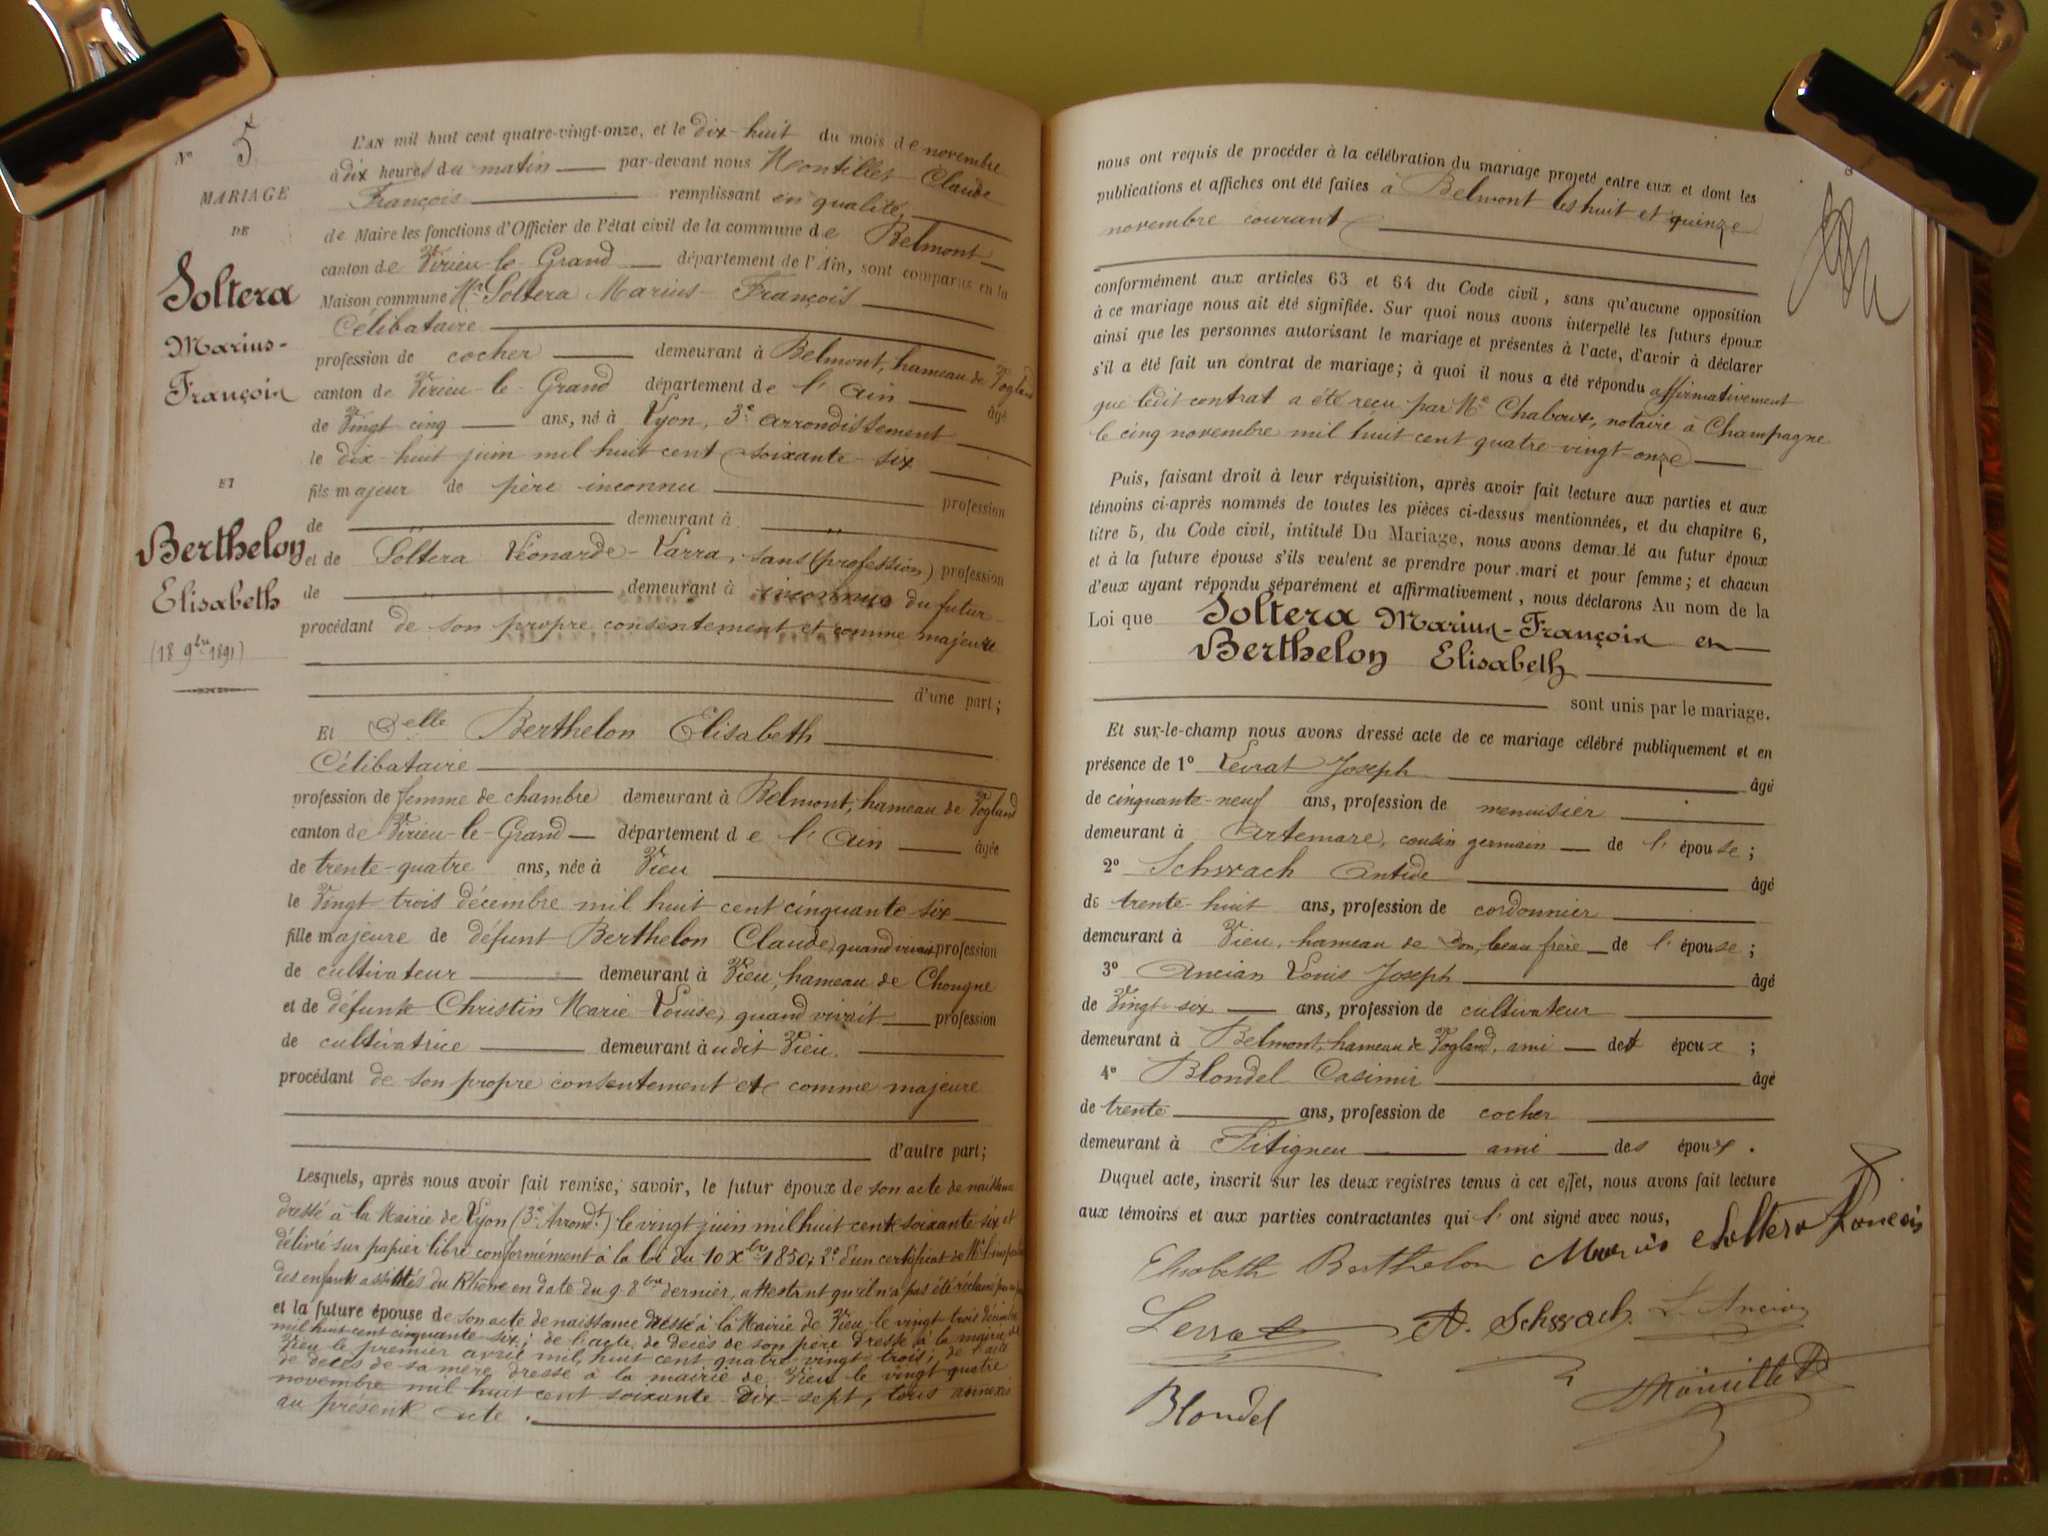 N° 5
MARIAGE
DE
Soltera
Marius-
François
ET
Berthelon
Elisabeth
(18 9bre 1891)
L'AN mil huit cent quatre-vingt-onze, et le dix-huit du mois de novembre
à dix heures du matin par-devant nous Montillet Claude
François remplissant en qualité
de Maire les fonctions d'Officier de l'état civil de la commune de Belmont
canton de Virieu-le-Grand département de l'Ain, sont comparus en la
Maison commune Mr Soltera Marius François
Célibataire
profession de cocher demeurant à Belmont, hameau de Vogland
canton de Virieu-le-Grand département de l'Ain âgé
de Vingt cinq ans, né à Lyon, 3e arrondissement
le dix-huit juin mil huit cent soixante-six
fils majeur de père inconnu profession
de demeurant à
et de Soltera Léonarde-Larra, sans (profession) profession
de demeurant à inconnus du futur
procédant de son propre consentement et comme majeure
d'une part;
Et Delle Berthelon Elisabeth
Célibataire
profession de femme de chambre demeurant à Belmont, hameau de Vogland
canton de Virieu-le-Grand département de l'Ain âgée
de trente-quatre ans, née à Vieu
le Vingt trois décembre mil huit cent cinquante-six
fille majeure de défunt Berthelon Claude, quand vivait profession
de cultivateur demeurant à Vieu, hameau de Chongne
et de défunte Christin Marie Louise, quand vivait profession
de cultivatrice demeurant àudit Vieu.
procédant de son propre consentement et comme majeure
d'autre part;
Lesquels, après nous avoir fait remise, savoir, le futur époux de son acte de naissance
dressé à la Mairie de Lyon (3e Arrondt) le vingt juin mil huit cent soixante six et
délivré sur papier libre conformément à la loi du 10 Xbre 1850; 2° d'un certificat de Mr
des enfants assistés du Rhône en date du 9 8bre dernier, attestant qu'il n'a pas été réclamé
et la future épouse de son acte de naissance dressé à la Mairie de Vieu le vingt trois décembre
mil huit cent cinquante-six; de l'acte de décès de son père dressé à la mairie de
Vieu le premier avril mil huit cent quatre-vingt-trois; de l'acte
de décès de sa mère dressé à la mairie de Vieu le vingt-quatre
novembre mil huit cent soixante-dix-sept, tous annexés
au présent acte.
nous ont requis de procéder à la célébration du mariage projeté entre eux et dont les
publications et affiches ont été faites à Belmont les huit et quinze
novembre courant
conformément aux articles 63 et 64 du Code civil, sans qu'aucune opposition
à ce mariage nous ait été signifiée. Sur quoi nous avons interpellé les futurs époux
ainsi que les personnes autorisant le mariage et présentes à l'acte, d'avoir à déclarer
s'il a été fait un contrat de mariage; à quoi il nous a été répondu affirmativement
que ledit contrat a été reçu par Me Chaboux, notaire à Champagne
le cinq novembre mil huit cent quatre-vingt-onze
Puis, faisant droit à leur réquisition, après avoir fait lecture aux parties et aux
témoins ci-après nommés de toutes les pièces ci-dessus mentionnées, et du chapitre 6,
titre 5, du Code civil, intitulé Du Mariage, nous avons demandé au futur époux
et à la future épouse s'ils veulent se prendre pour mari et pour femme; et chacun
d'eux ayant répondu séparément et affirmativement, nous déclarons Au nom de la
Loi que Soltera Marius-François en
Berthelon Elisabeth
sont unis par le mariage.
Et sur-le-champ nous avons dressé acte de ce mariage célébré publiquement et en
présence de 1° Levrat Joseph âgé
de cinquante-neuf ans, profession de menuisier
demeurant à Artemare, cousin germain de l'épouse;
2° Schsrach Antide âgé
de trente-huit ans, profession de cordonnier
demeurant à Vieu, hameau de Don, beau frère de l'épouse;
3° Ancian Louis Joseph âgé
de Vingt-six ans, profession de cultivateur
demeurant à Belmont, hameau de Vogland, ami des époux;
4° Blondel Casimir âgé
de trente ans, profession de cocher
demeurant à Fitigneu ami des époux.
Duquel acte, inscrit sur les deux registres tenus à cet effet, nous avons fait lecture
aux témoins et aux parties contractantes qui l'ont signé avec nous,
Elisabeth Berthelon Marius Soltera François
Levrat A. Schsrach L. Ancian
Blondel Montillet